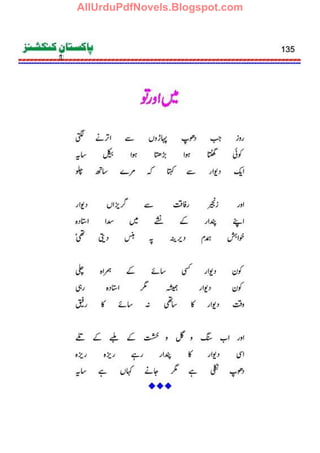 AllUrduPdfNovels.Blogspot.com
پاکستان کنکشنز
135
میں اور تو
روز جب دھوپ پہاڑوں سے اترنے لگتی
کوئی گھٹتا ہوا بڑھتا ہوا بیکل سایہ
ایک دیوار سے کہتا کہ مرے ساتھ چلو
اور زنجیر رفاقت سے گریزاں دیوار
اپنے پندار کے نشے میں سدا استادہ
خواہش ہمدم دیرینہ پہ ہنس دیتی تھی
کون دیوار کسی سائے کے ہمراہ چلی
کون دیوار ہمیشہ مگر استادہ رہی
وقت دیوار کا ساتھی نہ سائے کا رفیق
اور اب سنگ و گل و خشت کے ملبے کے تلے
اسی دیوار کا پندار ہے ریزہ ریزہ
دھوپ نکلی ہے مگر جانے کہاں ہے سایہ